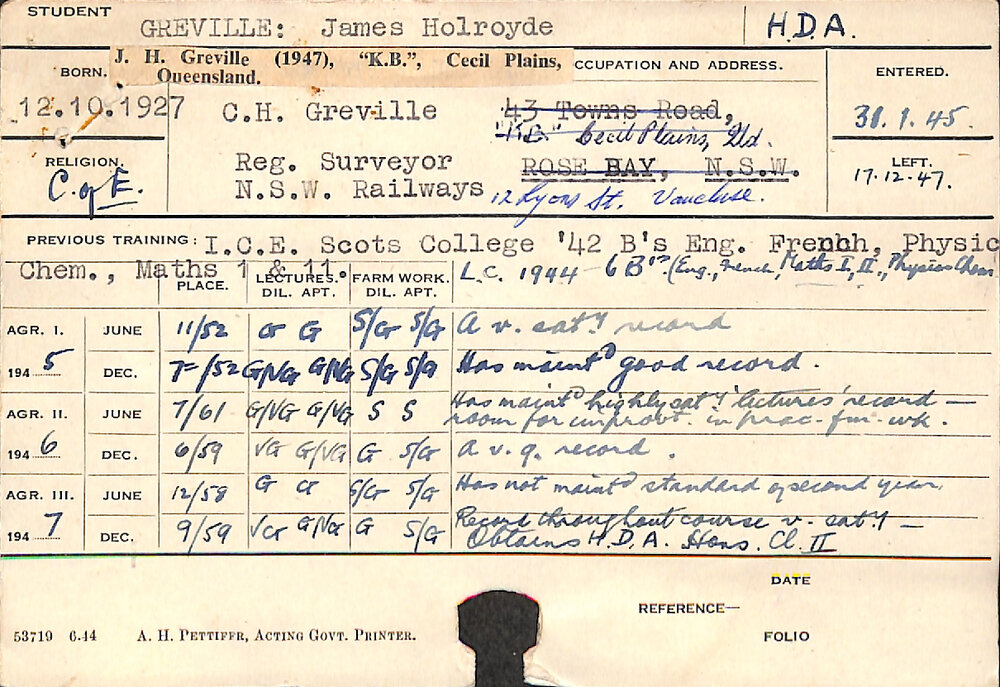 STUDENT
GREVILLE: James Holroyde
H.D.A.
J. H. Greville (1947), "K.B.", Cecil Plains,
Queensland.
BORN.
CCUPATION AND ADDRESS.
ENTERED.
12.10.1927
C.H. Greville
43 Towns Road,
31.1.45.
"K.B." Cecil Plains, Qld.
RELIGION.
Reg. Surveyor
ROSE BAY, N.S.W.
LEFT.
C. of E.
N.S.W. Railways
12 Lyons St. Vaucluse.
17.12.47.
PREVIOUS TRAINING: I.C.E. Scots College '42 B's Eng. French, Physic
Chem., Maths 1 & 11.
L.C. 1944 - 6 B's (Eng., French, Maths I, II, Physics Chem
PLACE. LECTURES. FARM WORK.
DIL. APT. DIL. APT.
AGR. I. JUNE 11/52 G G S/G S/G A v. sat'y record
1945 DEC. 7=/52 G/VG G/VG S/G S/G Has maintd good record.
AGR. II. JUNE 7/61 G/VG G/VG S S Has maintd highly sat'y 'lectures' record —
room for improvt. in prac. fm. wk.
1946 DEC. 6/59 VG G/VG G S/G A v. g. record.
AGR. III. JUNE 12/58 G G S/G S/G Has not maintd standard of second year.
1947 DEC. 9/59 VG G/VG G S/G Record throughout course v. sat'y —
Obtains H.D.A. Hons. Cl. II
DATE
REFERENCE—
53719 6.44 A. H. PETTIFER, ACTING GOVT. PRINTER.
FOLIO